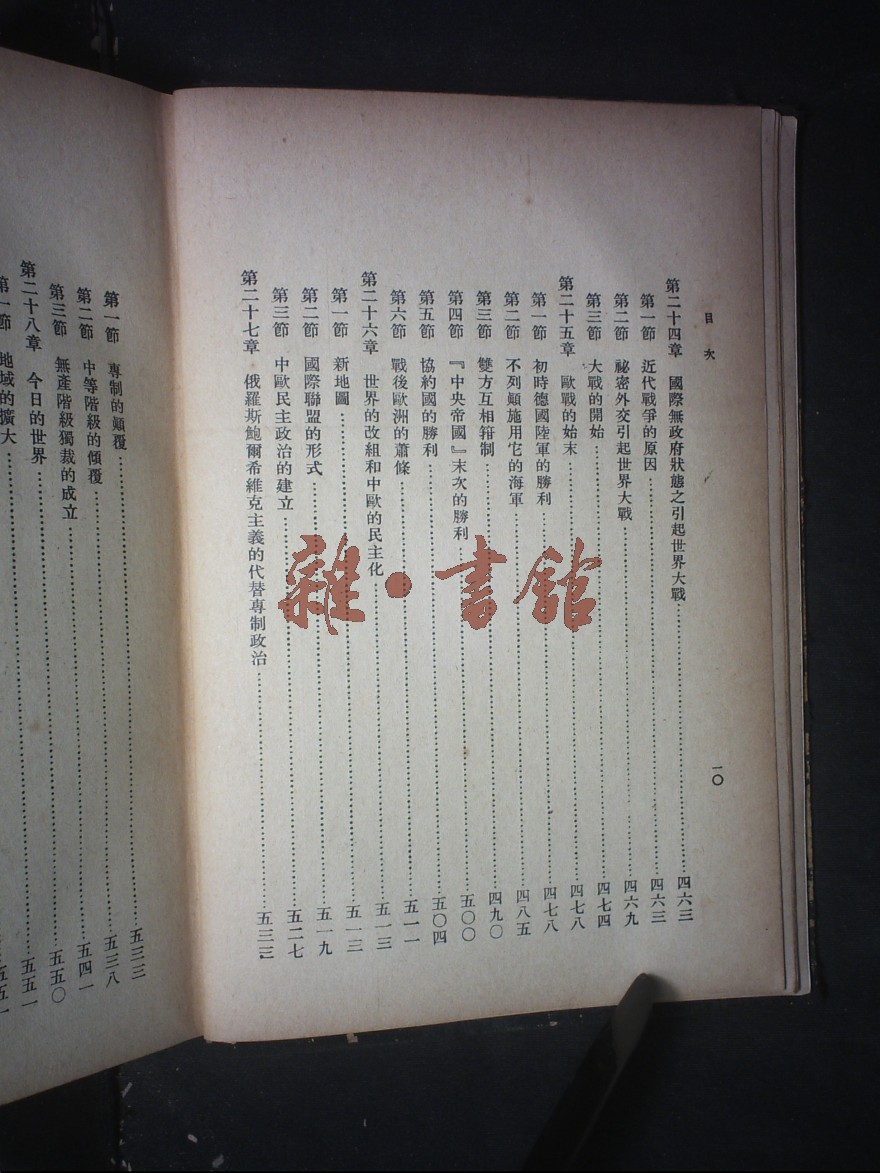 目次
一〇
第二十四章 國際無政府狀態之引起世界大戰……四六三
第一節 近代戰爭的原因……四六三
第二節 祕密外交引起世界大戰……四六九
第三節 大戰的開始……四七四
第二十五章 歐戰的始末……四七八
第一節 初時德國陸軍的勝利……四七八
第二節 不列顛施用它的海軍……四八五
第三節 雙方互相箝制……四九〇
第四節 『中央帝國』末次的勝利……五〇〇
第五節 協約國的勝利……五〇四
第六節 戰後歐洲的蕭條……五一一
第二十六章 世界的改組和中歐的民主化……五一三
第一節 新地圖……五一三
第二節 國際聯盟的形式……五一九
第三節 中歐民主政治的建立……五二七
第二十七章 俄羅斯鮑爾希維克主義的代替專制政治……五三三
第一節 專制的顛覆……五三三
第二節 中等階級的傾覆……五三八
第三節 無產階級獨裁的成立……五四一
第二十八章 今日的世界……五五〇
第一節 地域的擴大……五五一
雜·書館